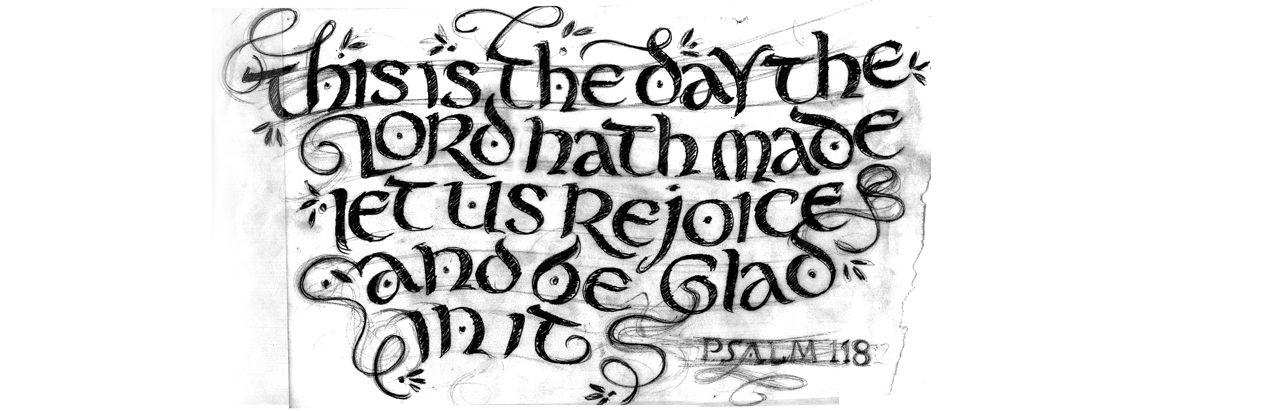 this is the day the
LORd hath made
let us Rejoice
and be Glad
in it
PSALM 118